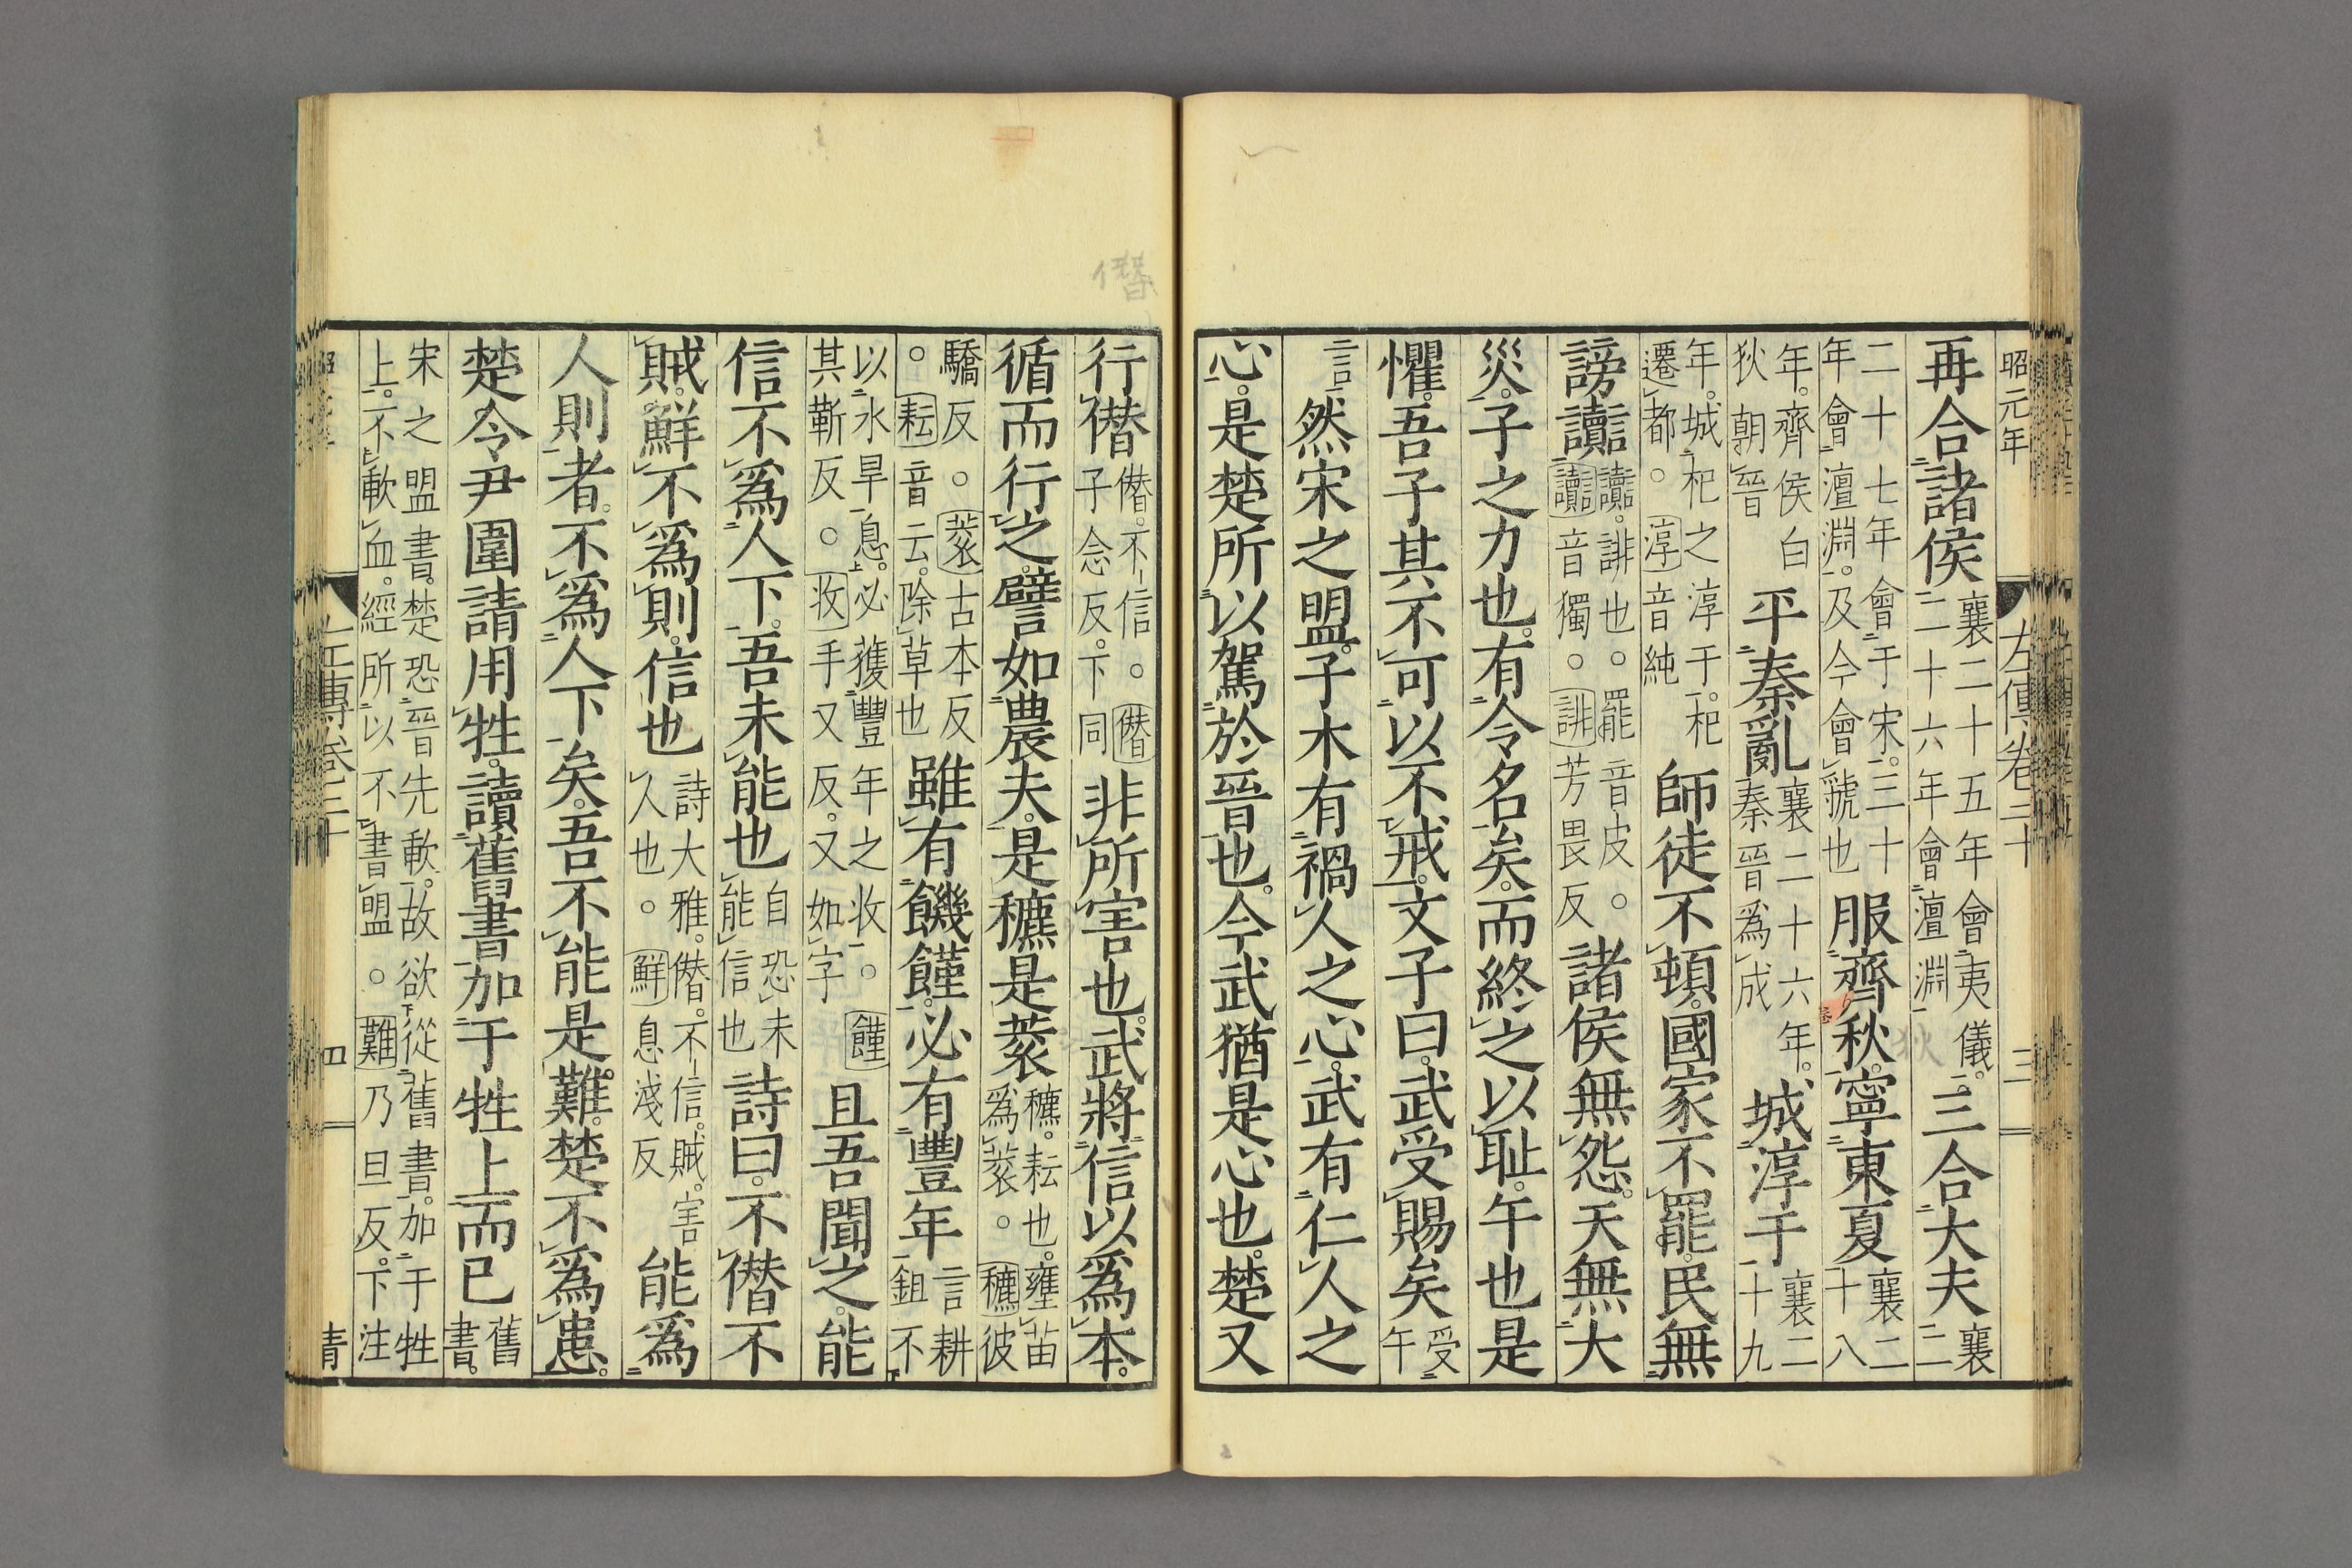 昭元年 左傳卷二十 三
再合諸侯襄二十五年會夷儀。二十六年會澶淵三合大夫襄二
二十七年會于宋。三十年會澶淵。及今會虢也服齊秋。寧東夏襄二十八
年。齊侯白狄朝晉平秦亂襄二十六年。秦晉爲成城淳于襄二十九
年。城杞之淳于。杞遷都。○淳音純師徒不頓。國家不罷。民無
謗讟讟。誹也。○罷音皮。○讟音獨。○誹芳畏反諸侯無怨。天無大
災。子之力也。有令名矣。而終之以耻。午也是
懼。吾子其不可以不戒。文子曰。武受賜矣受午
言然宋之盟。子木有禍人之心。武有仁人之
心。是楚所以駕於晉也。今武猶是心也。楚又
僭
行僭僭。不信。○僭子念反。下同非所害也。武將信以爲本。
循而行之。譬如農夫。是穮是蔉穮。耘也。壅苗爲蔉。○穮彼
驕反。○蔉古本反。○耘音云。除草也雖有饑饉。必有豐年言耕鉏不
以水旱息。必獲豐年之收。○饉其靳反。○收手又反。又如字且吾聞之。能
信不爲人下。吾未能也自恐未能信也詩曰。不僭不
賊。鮮不爲則。信也詩大雅。僭。不信。賊。害人也。○鮮息淺反能爲
人則者。不爲人下矣。吾不能是難。楚不爲患。
楚令尹圍請用牲。讀舊書加于牲上而已舊書。
宋之盟書。楚恐晉先歃。故欲從舊書。加于牲上。不歃血。經所以不書盟。○難乃旦反。下注
左傳卷二十 四